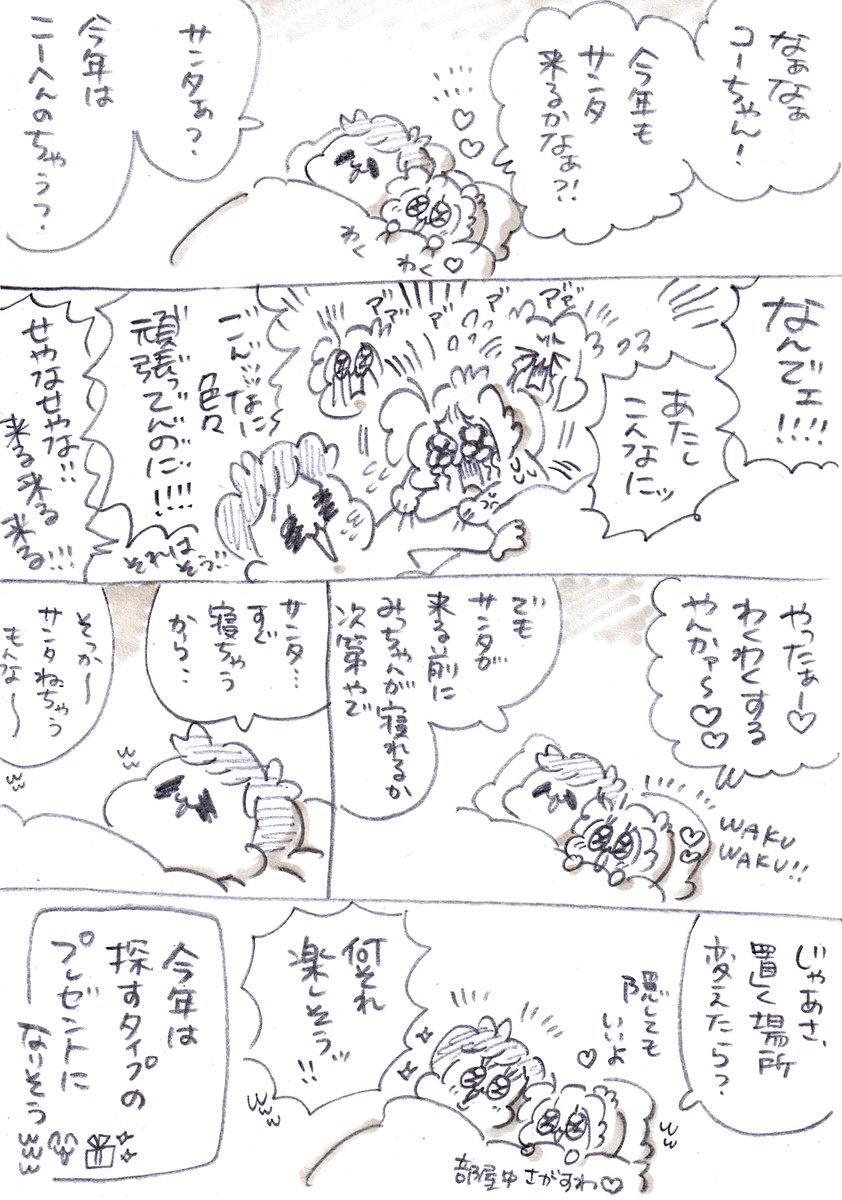 なぁなぁ
コーちゃん！
今年も
サンタ
来るかなぁ？！
わく
わく♡
サンタぁ？
今年は
こーへんのちゃう？
なんでェ！！！！
あたし
こんなにッ
ごんッなに〜
色々
頑張っでんのに゙！！！！
それはそう！！
せやなせやな！！
来る来る
来る！！！
やったぁー♡
わくわくする
やんかァ〜♡♡
WAKU
WAKU！！
でも
サンタが
来る前に
みっちゃんが寝れるか
次第やで
サンタ…
すぐ
寝ちゃう
から…
そっか〜
サンタねちゃう
もんな〜〜
じゃあさ、
置く場所
変えたら？
隠しても
いいよ
♡
部屋中さがすわ♡
何それ
楽しそうッ
！！
今年は
探すタイプの
プレゼントに
なりそう